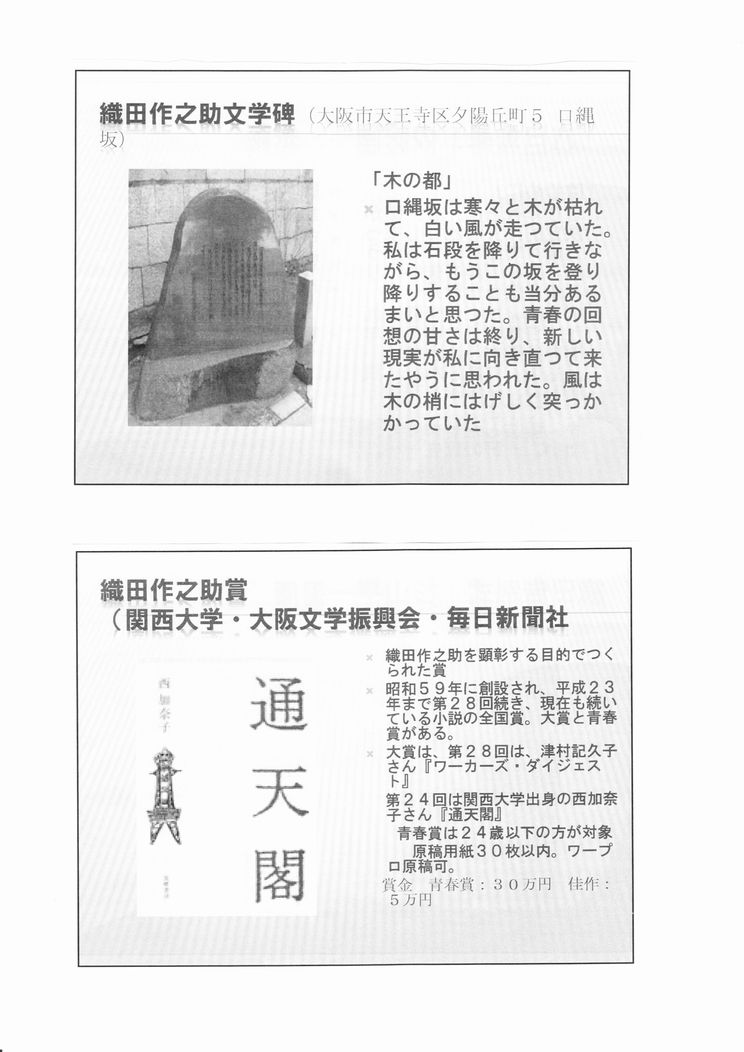 織田作之助文学碑（大阪市天王寺区夕陽丘町５　口縄
坂）
「木の都」
口縄坂は寒々と木が枯れ
て、白い風が走つていた。
私は石段を降りて行きな
がら、もうこの坂を登り
降りすることも当分ある
まいと思つた。青春の回
想の甘さは終り、新しい
現実が私に向き直つて来
たやうに思われた。風は
木の梢にはげしく突っか
かっていた
織田作之助賞
（関西大学・大阪文学振興会・毎日新聞社
通天閣
西加奈子
筑摩書房
織田作之助を顕彰する目的でつく
られた賞
昭和５９年に創設され、平成２３
年まで第２８回続き、現在も続い
ている小説の全国賞。大賞と青春
賞がある。
大賞は、第２８回は、津村記久子
さん『ワーカーズ・ダイジェス
ト』
第２４回は関西大学出身の西加奈
子さん『通天閣』
青春賞は２４歳以下の方が対象
原稿用紙３０枚以内。ワープ
ロ原稿可。
賞金　青春賞：３０万円　佳作：
５万円